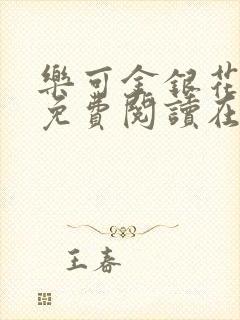 樂可金銀花
免費閱讀在
王春